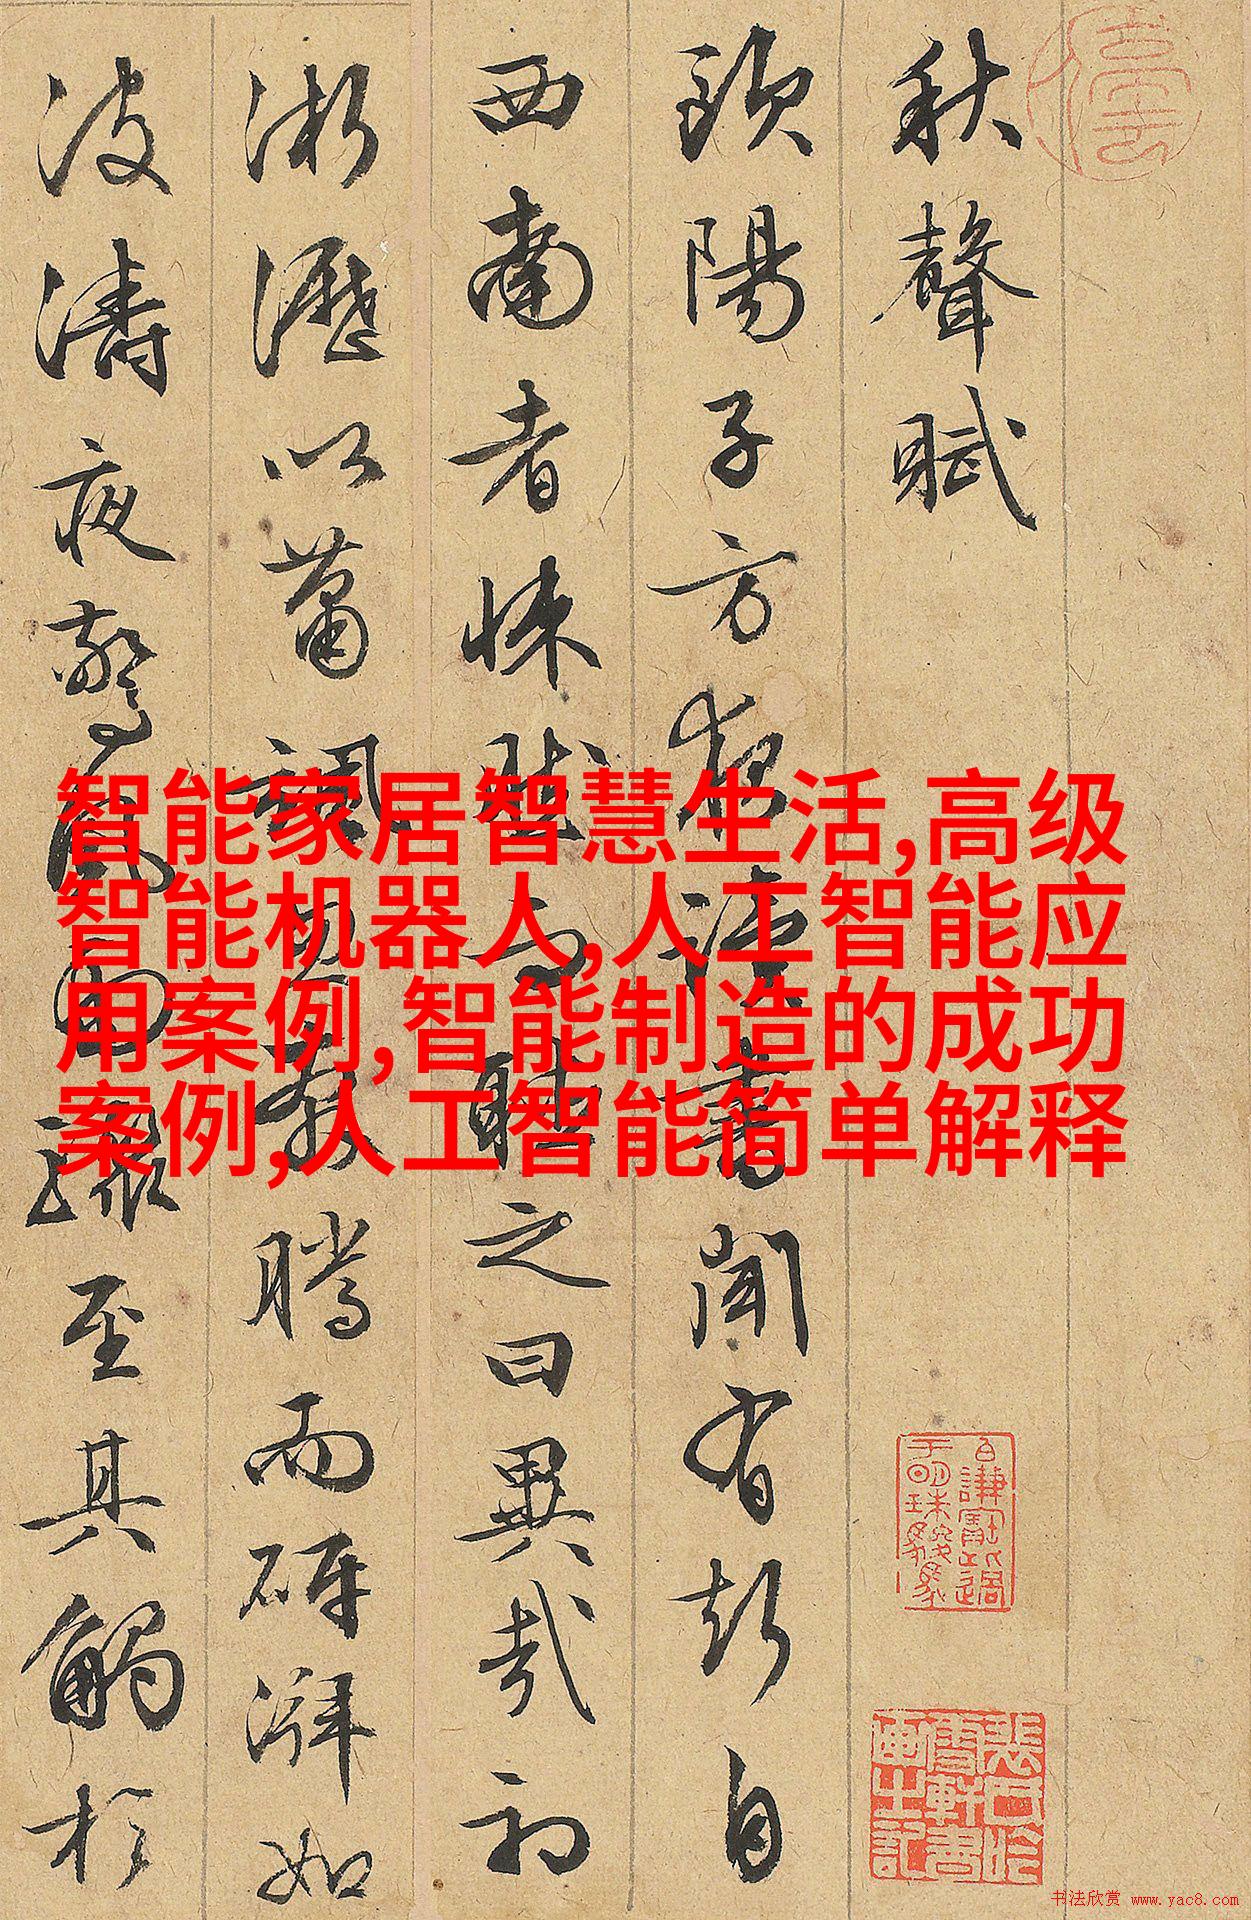 秋聲賦
歐陽子方夜讀書聞有聲自
西南者悚然而聽之曰異哉初
淅瀝以蕭颯忽奔騰而砰湃如
波濤夜驚風雨驟至其觸於
智能家居智慧生活,高级
智能机器人,人工智能应
用案例,智能制造的成功
案例,人工智能简单解释
书法欣赏 www.yac8.com